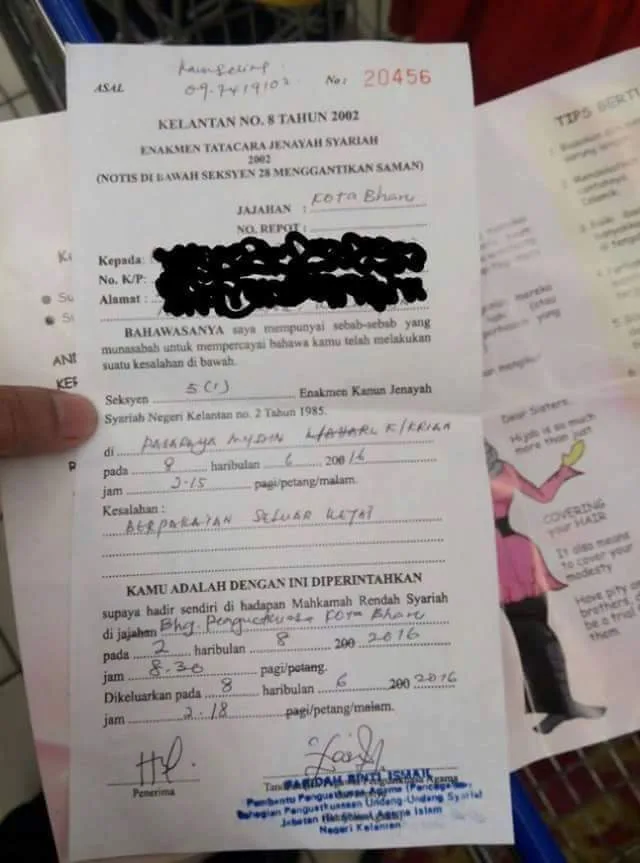 Kaunseling
ASAL
09-7419102
No: 20456
KELANTAN NO. 8 TAHUN 2002
ENAKMEN TATACARA JENAYAH SYARIAH
2002
(NOTIS DI BAWAH SEKSYEN 28 MENGGANTIKAN SAMAN)
JAJAHAN : Kota Bharu
NO. REPOT :
Kepada:
No. K/P:
Alamat :
BAHAWASANYA saya mempunyai sebab-sebab yang
munasabah untuk mempercayai bahawa kamu telah melakukan
suatu kesalahan di bawah.
Seksyen 5(1) Enakmen Kanun Jenayah
Syariah Negeri Kelantan no. 2 Tahun 1985.
di PASARAYA MYDIN
pada 8 haribulan 6 200 16
jam 2.15 pagi/petang/malam.
Kesalahan :
BERPAKAIAN SELUAR KETAT
KAMU ADALAH DENGAN INI DIPERINTAHKAN
supaya hadir sendiri di hadapan Mahkamah Rendah Syariah
di jajahan Bhg. Penguatkuasa Kota Bharu
pada 2 haribulan 8 200 2016
jam 8.30 pagi/petang.
Dikeluarkan pada 8 haribulan 6 200 2016
jam 2.18 pagi/petang/malam.
Penerima
FARIDAH BINTI ISMAIL
Pembantu Penguatkuasa Agama (Pencegahan)
Bahagian Penguatkuasaan Undang-Undang Syariah
Jabatan Hal Ehwal Agama Islam
Negeri Kelantan
TIPS BERTU
Dear Sisters,
Hijab is so much
more than just
COVERING
your HAIR
It also means
to cover your
modesty
Have pity
brothers,
be a trial
them.